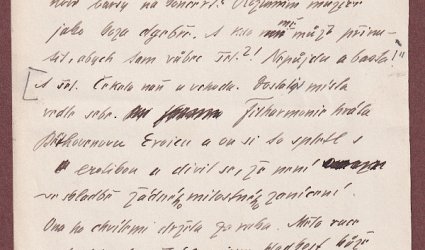 nové šaty na koncert. Rozumím muzice
jako koza dgebře. A kdo mě může přinu-
tit, abych tam vůbec šel?! Nepůjdu a basta!"
A šel. Čekala naň u vchodu. Dostali místa
vedle sebe. Filharmonie hrála
Bethovenovu Eroicu a on si to spletl s
erotikou a divil se, že není
ve skladbě žádného milostného zanícení.
Ona ho chvílemi držela za ruku. Měla ruce